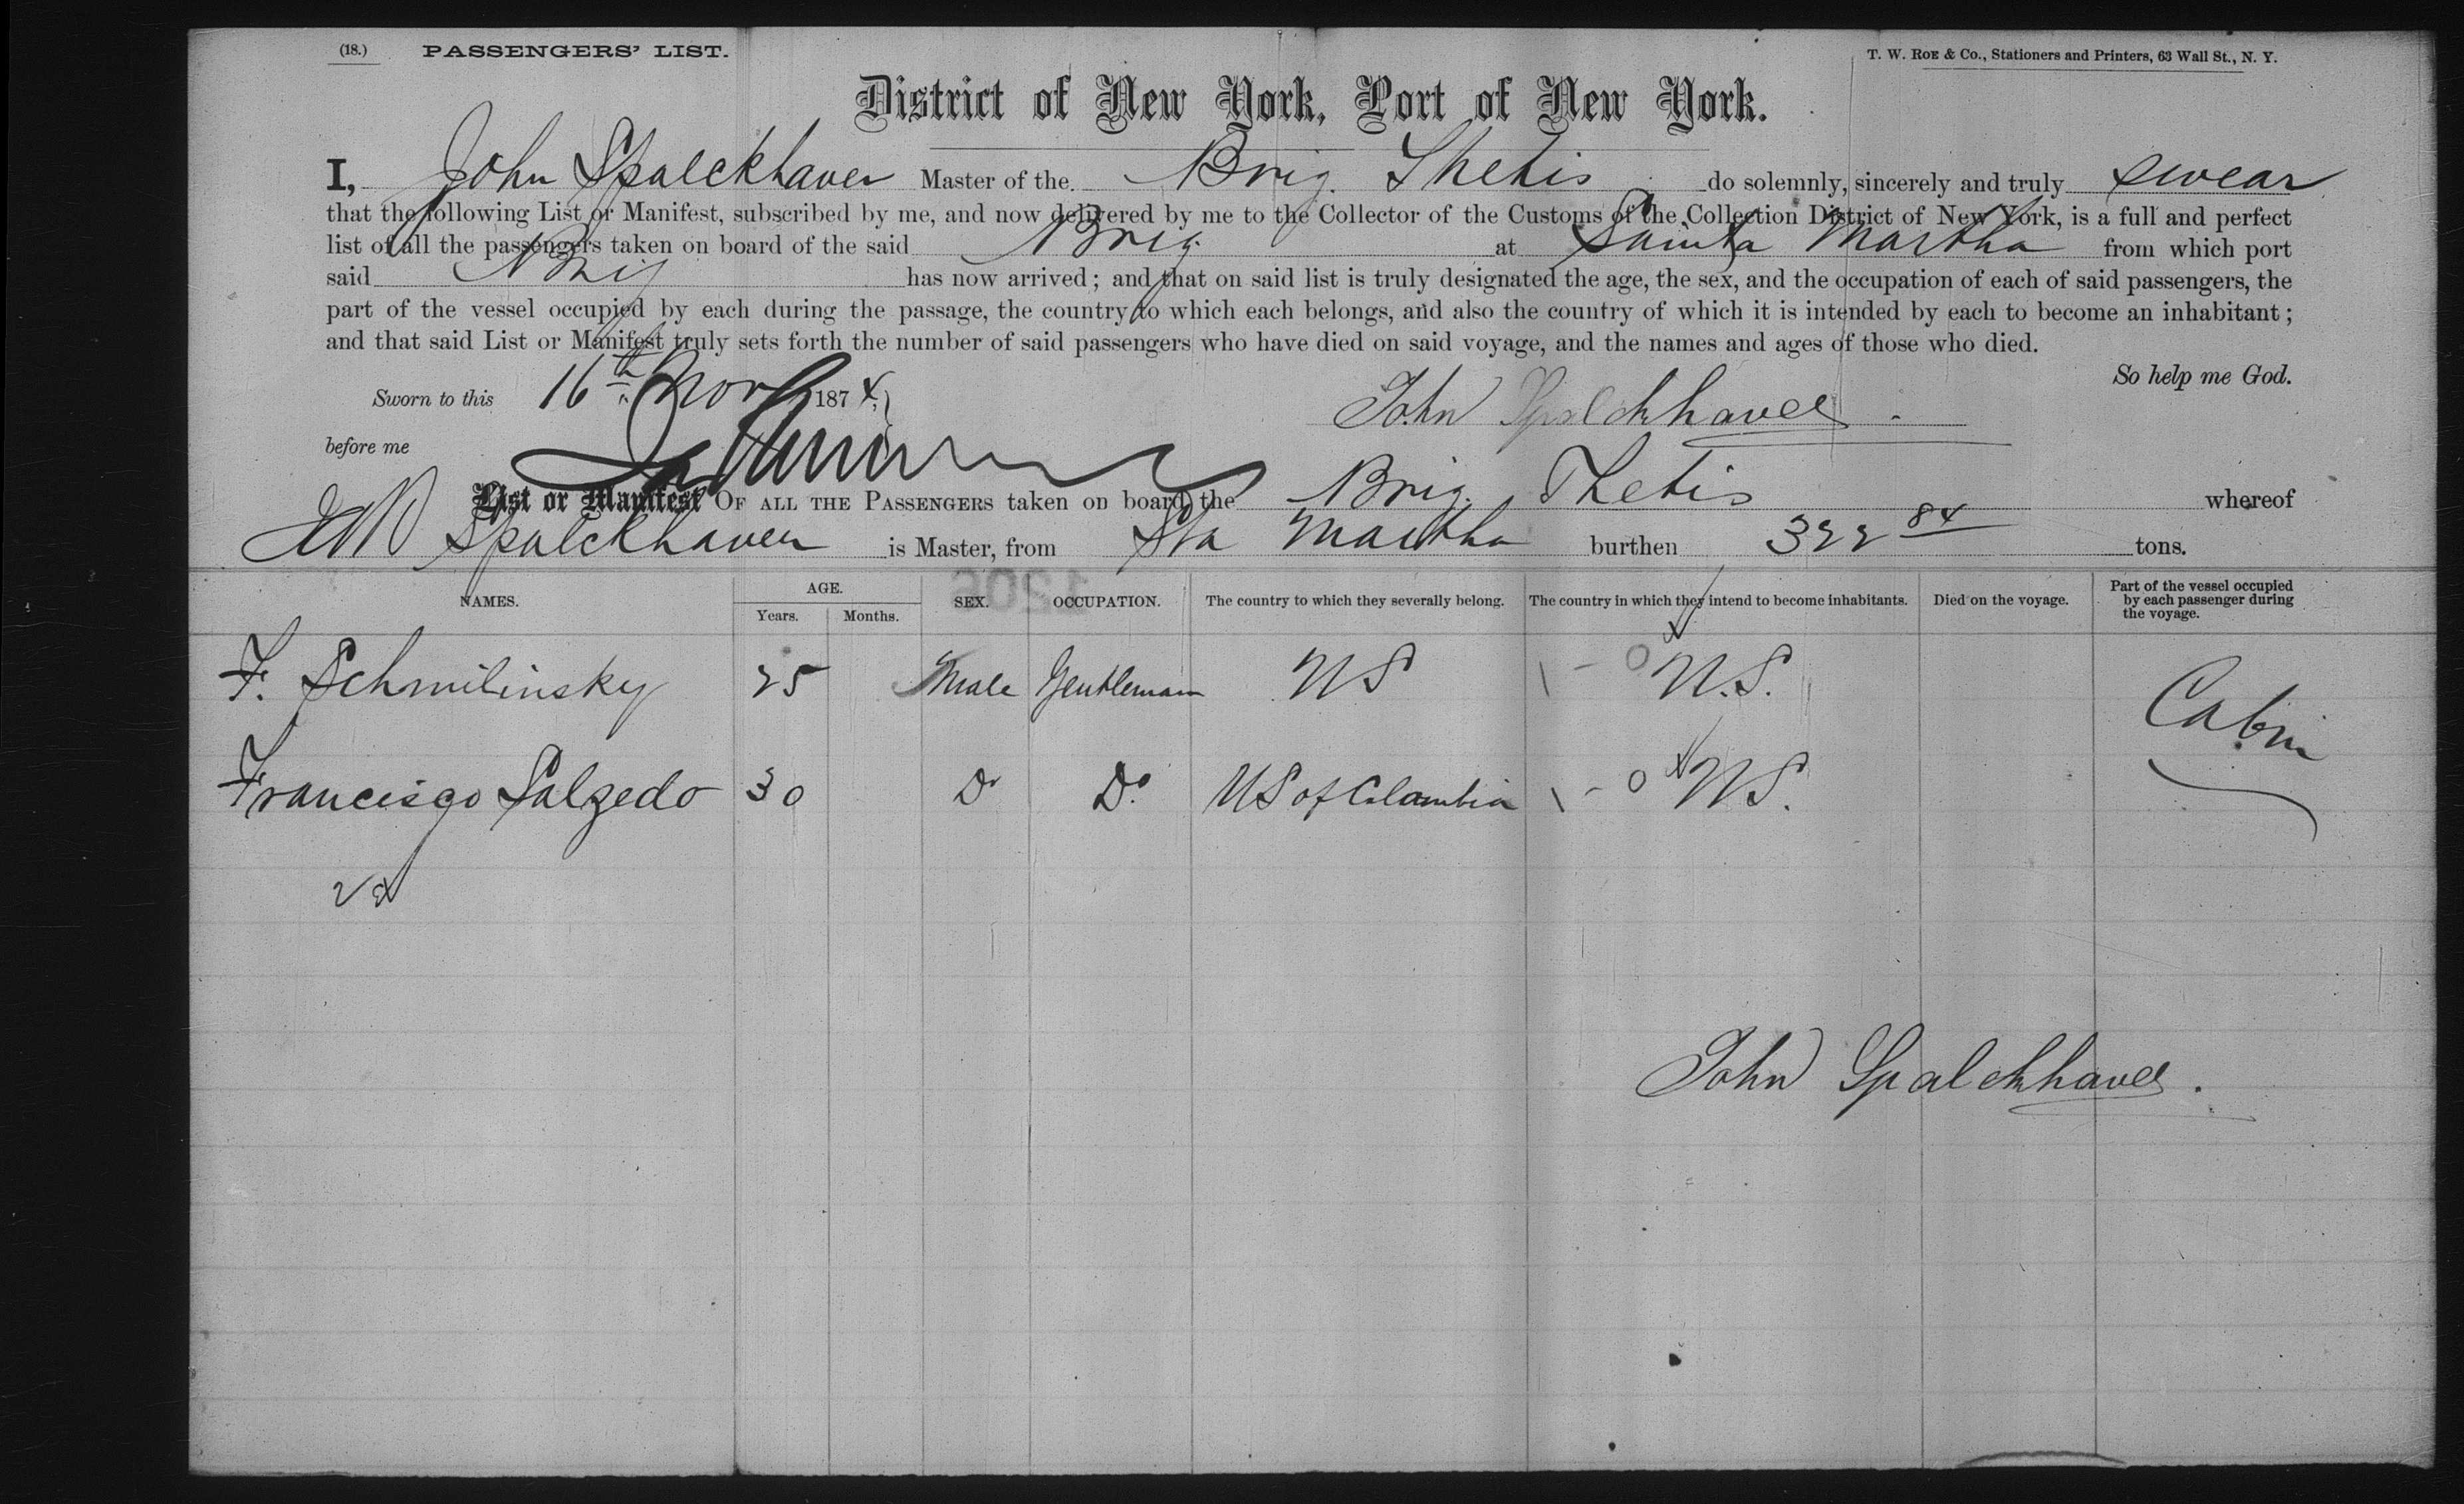 (18.) PASSENGERS' LIST. T. W. ROE & Co., Stationers and Printers, 63 Wall St., N. Y.
District of New York, Port of New York.
I, John Spalckhaver Master of the Brig. Thetis do solemnly, sincerely and truly swear
that the following List or Manifest, subscribed by me, and now delivered by me to the Collector of the Customs of the Collection District of New York, is a full and perfect
list of all the passengers taken on board of the said Brig. at Santa Martha from which port
said Brig has now arrived; and that on said list is truly designated the age, the sex, and the occupation of each of said passengers, the
part of the vessel occupied by each during the passage, the country to which each belongs, and also the country of which it is intended by each to become an inhabitant;
and that said List or Manifest truly sets forth the number of said passengers who have died on said voyage, and the names and ages of those who died.
So help me God.
Sworn to this 16th Nov 1874, John Spalckhaver.
before me
List or Manifest OF ALL THE PASSENGERS taken on board the Brig. Thetis whereof
Spalckhaver is Master, from Sta Martha burthen 322 84 tons.
NAMES. AGE. Years. Months. SEX. OCCUPATION. The country to which they severally belong. The country in which they intend to become inhabitants. Died on the voyage. Part of the vessel occupied by each passenger during the voyage.
F. Schmilinsky 25 Male Gentleman US U.S. Cabin
Francisco Salzedo 30 Do Do. US of Colambia US.
John Spalckhaver.